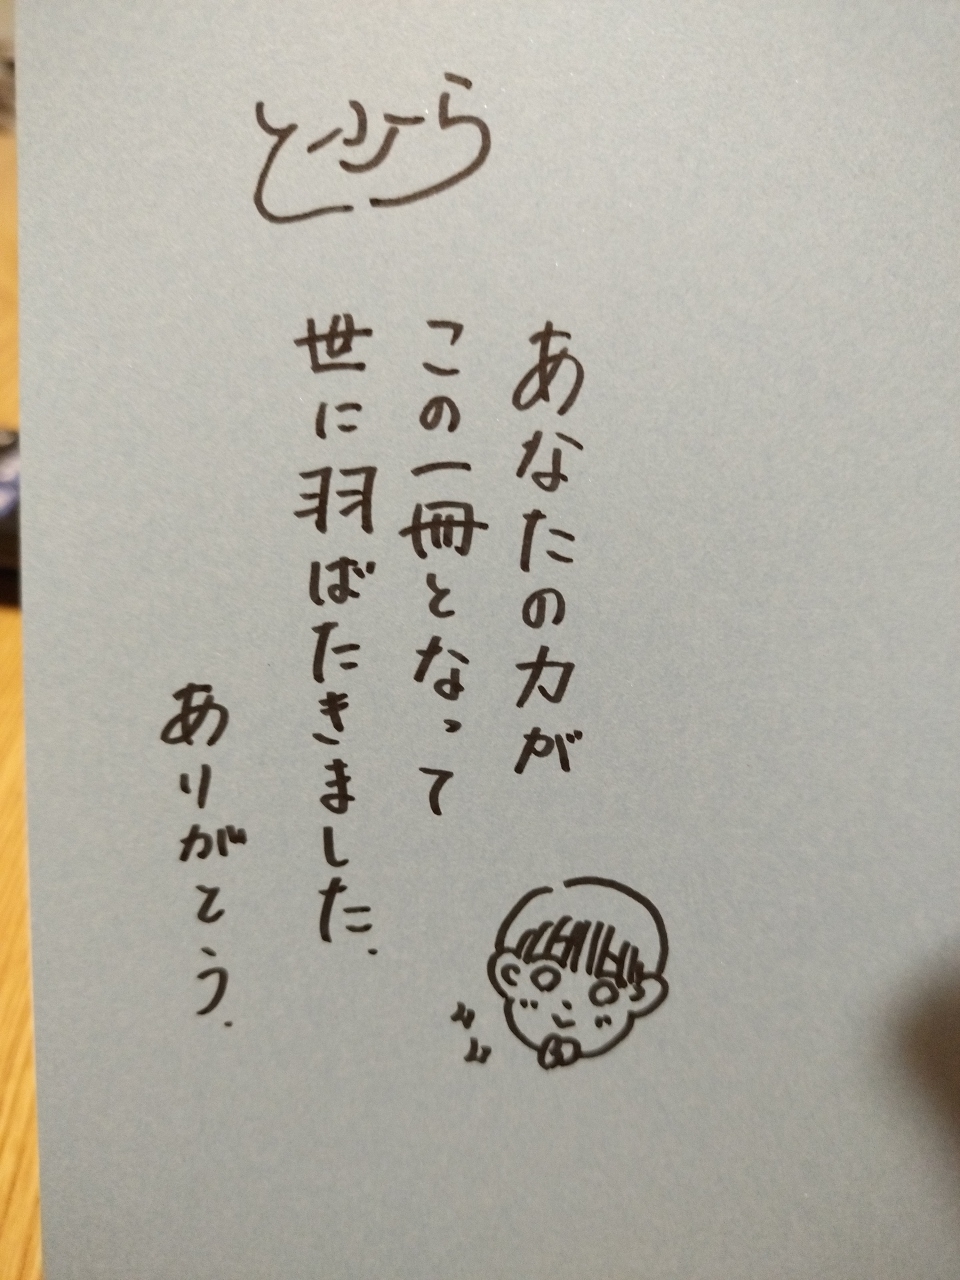 あなたの力が
この一冊となって
世に羽ばたきました.
ありがとう.